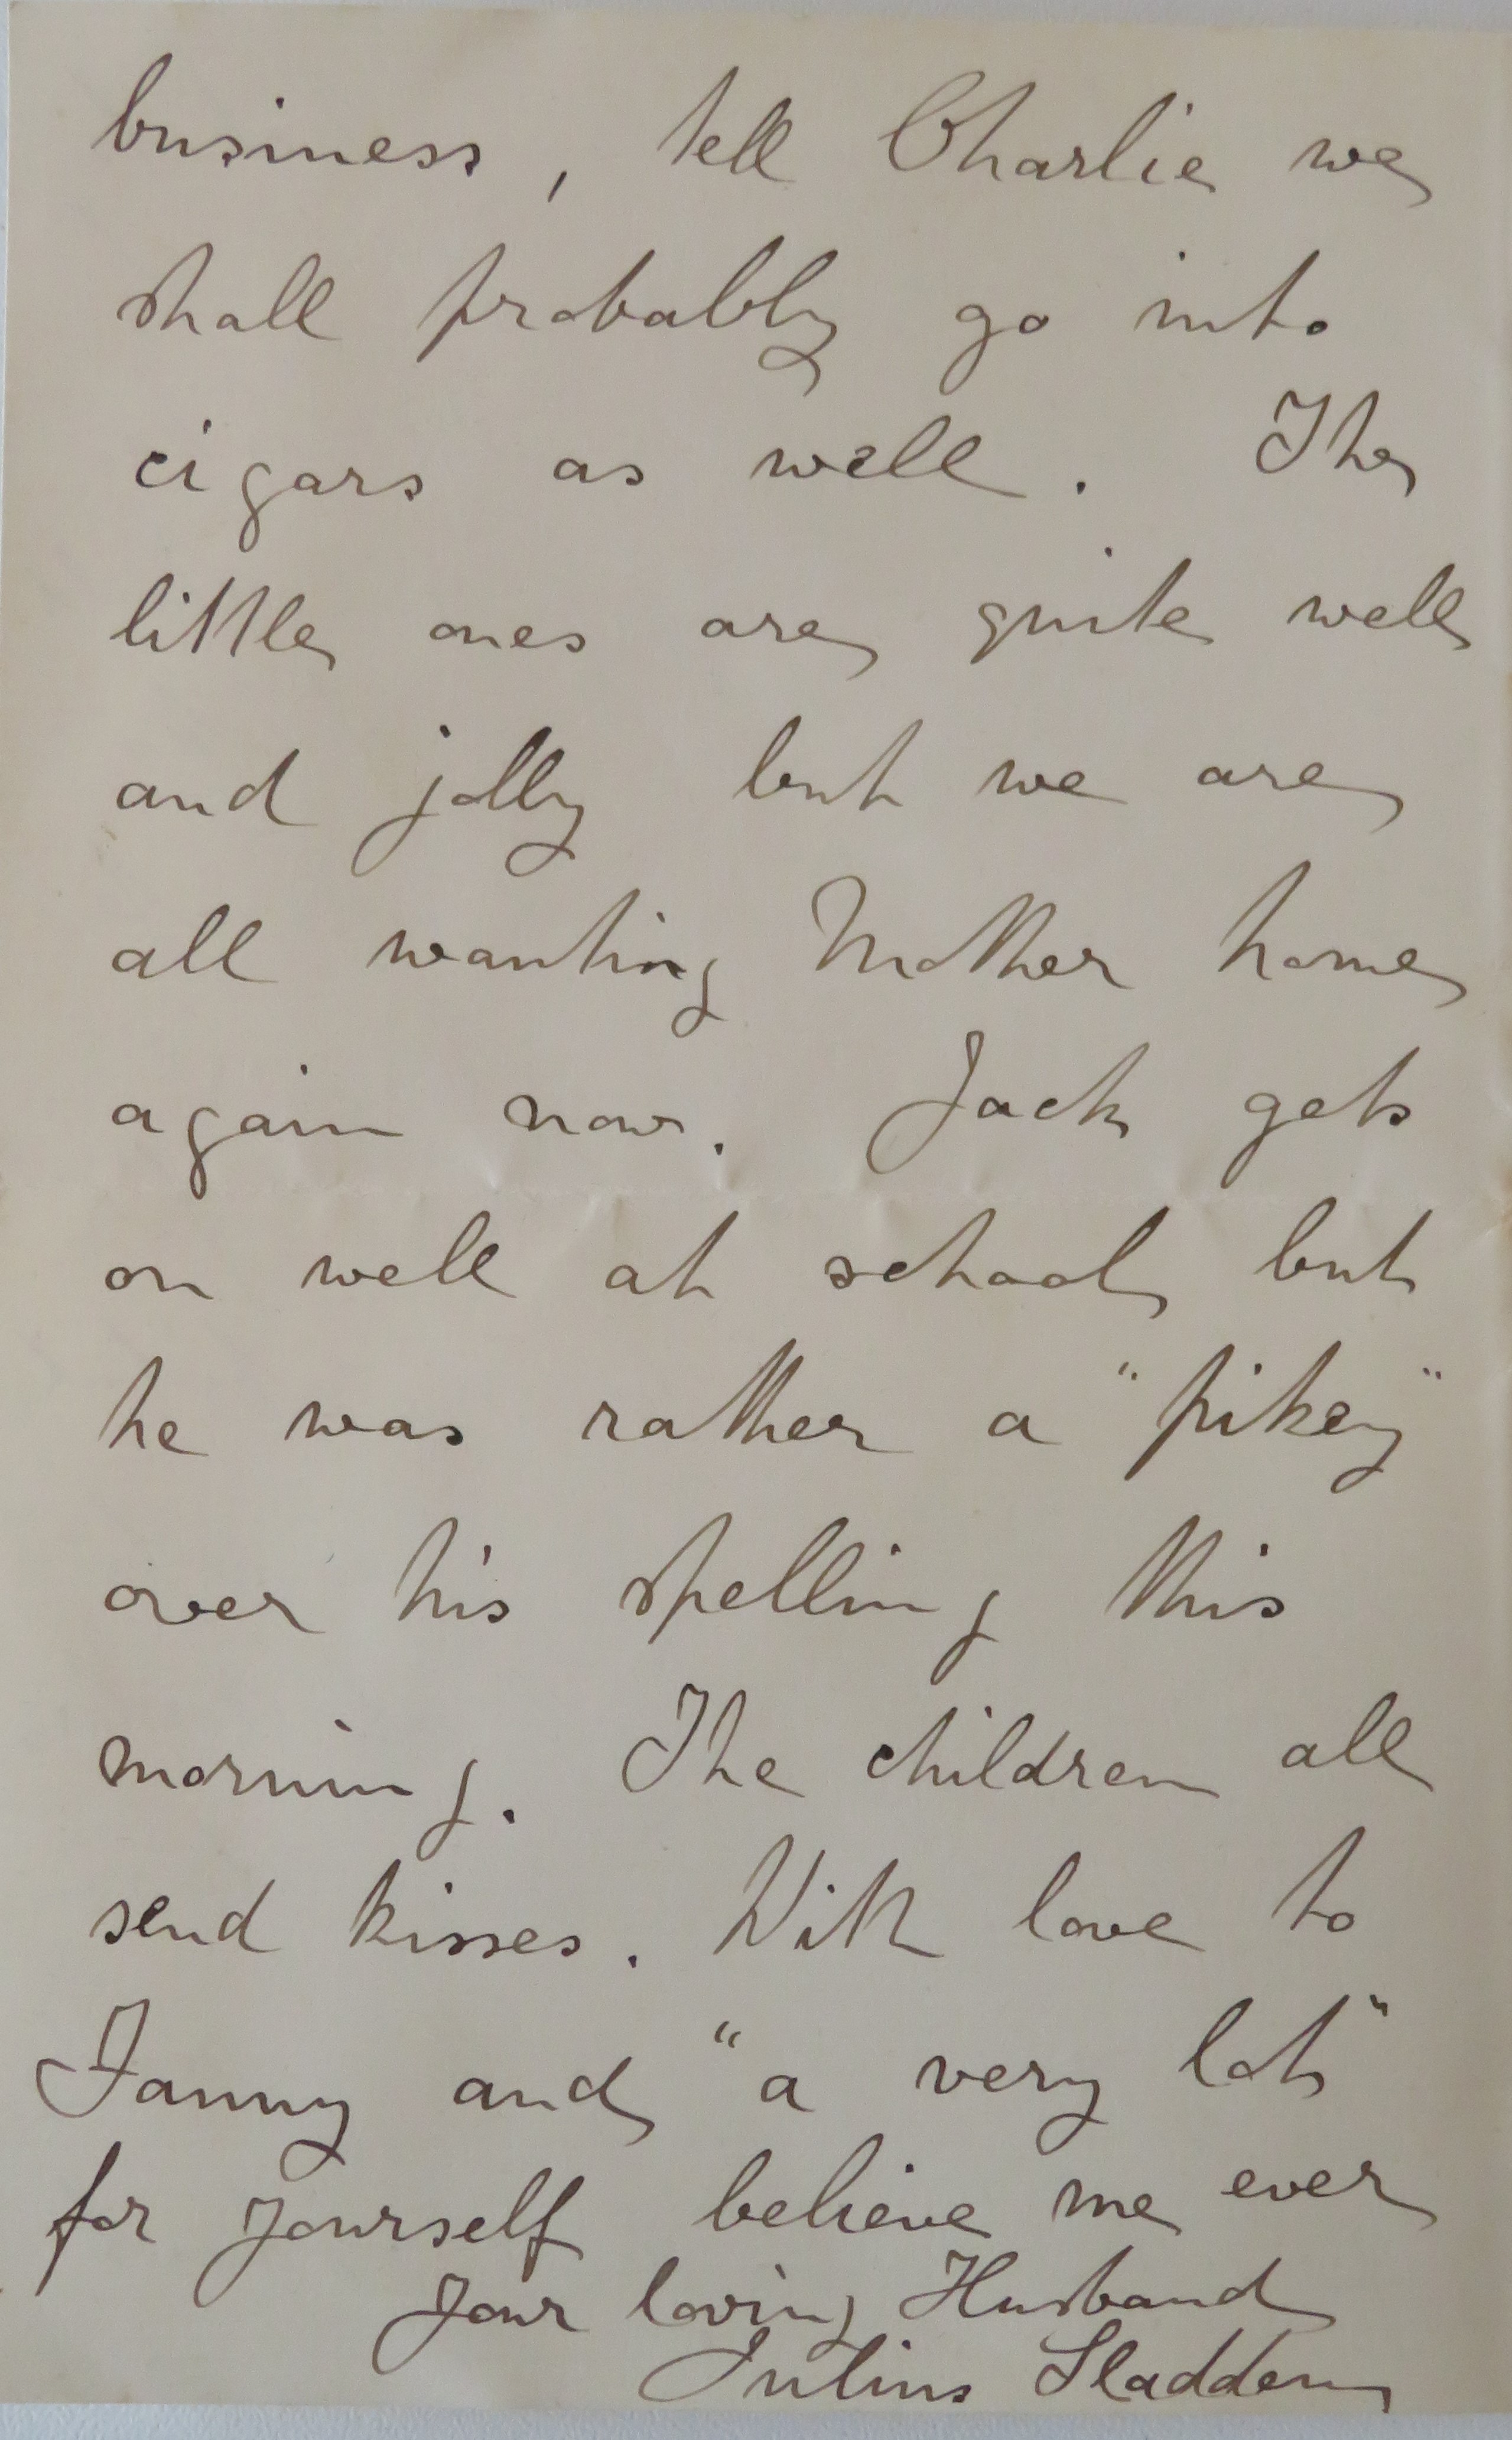 business, tell Charlie we
shall probably go into
cigars as well. The
little ones are quite well
and jolly but we are
all wanting Mother home
again now. Jack gets
on well at school but
he was rather a "pikey"
over his spelling this
morning. The children all
send kisses. With love to
Fanny and "a very lot"
for yourself believe me ever
your loving Husband
Julius Sladden